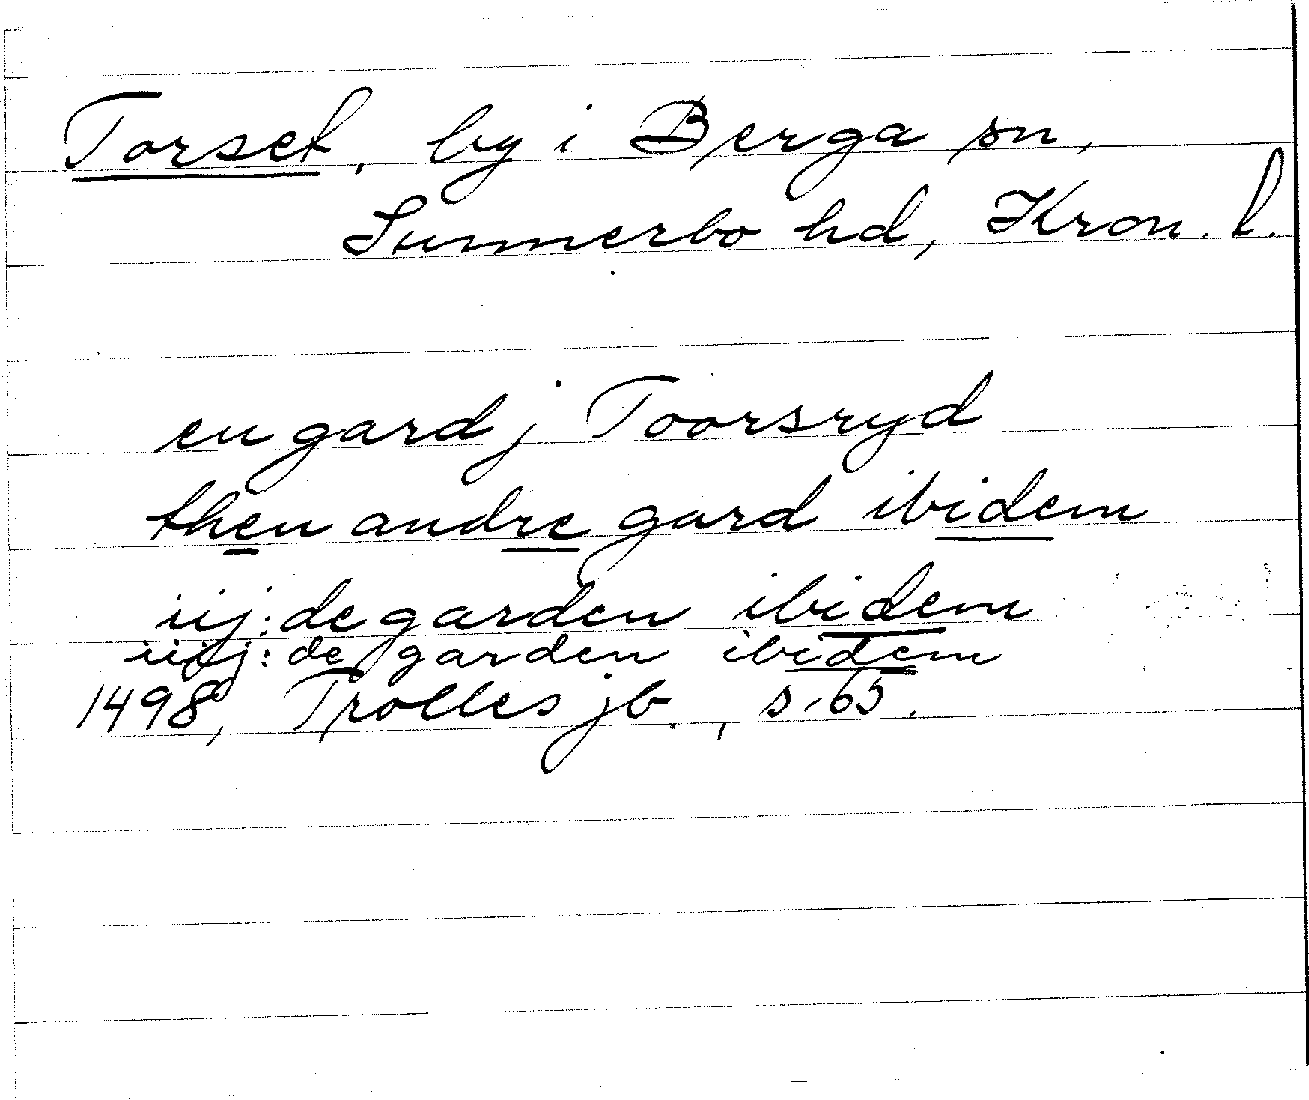 Torset, by i Berga sn,
Sunnerbo hd, Kron. l.
en gard j Toorsryd
then andre gard ibidem
iij: de garden ibidem
iiij: de garden ibidem
1498, Trolles jb., s. 65.